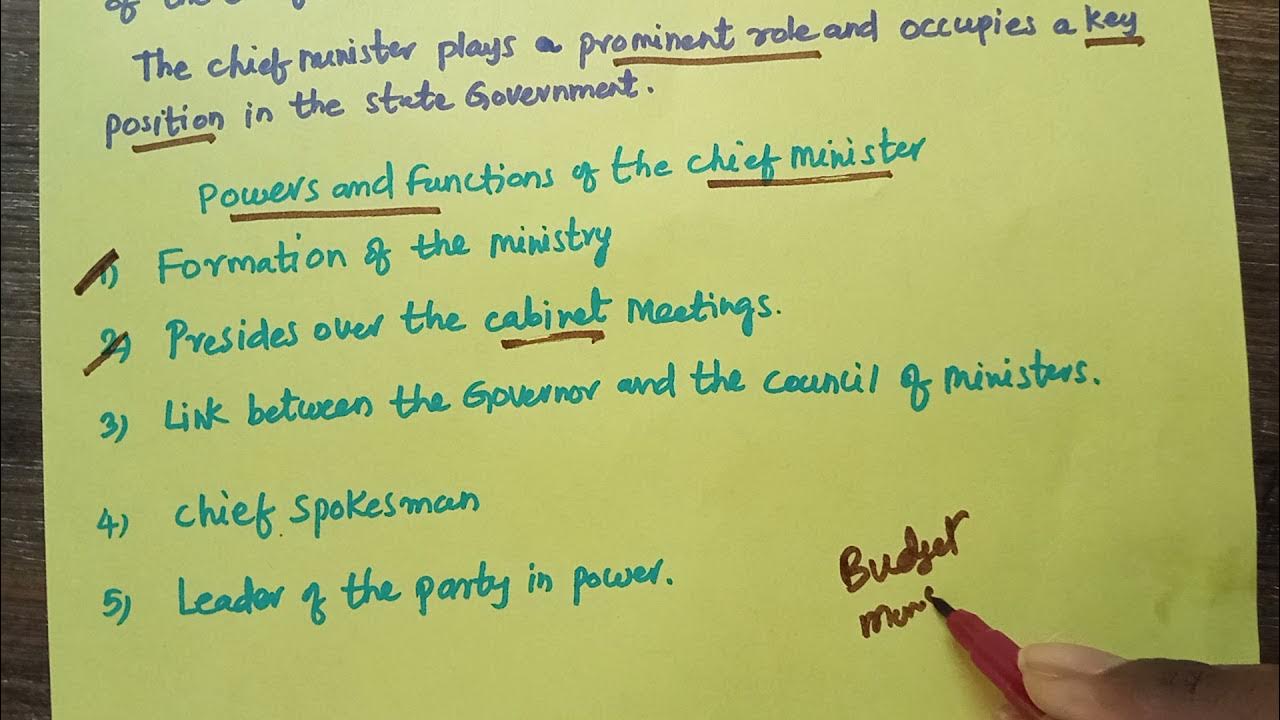 of the
The chief minister plays a prominent role and occupies a key
position in the state Government.
Powers and Functions of the chief minister
1) Formation of the ministry
2) Presides over the cabinet meetings.
3) Link between the Governor and the council of ministers.
4) chief spokesman
5) Leader of the party in power.
Budget